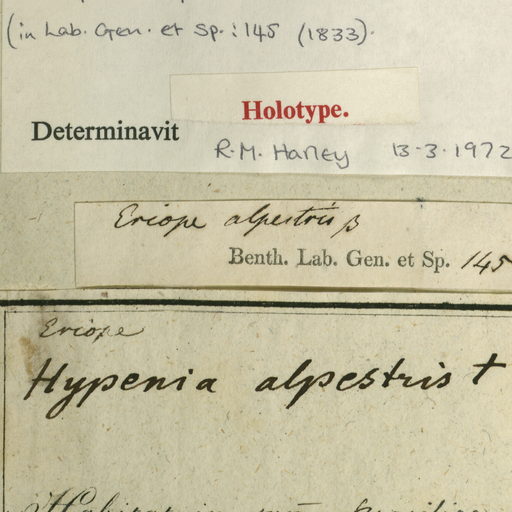 (in Lab. Gen. et Sp.: 145 (1833).
Holotype.
Determinavit
R.M. Harley 13-3-1972
Eriope alpestris β
Benth. Lab. Gen. et Sp. 145
Eriope
Hypenia alpestris +
Habitat in